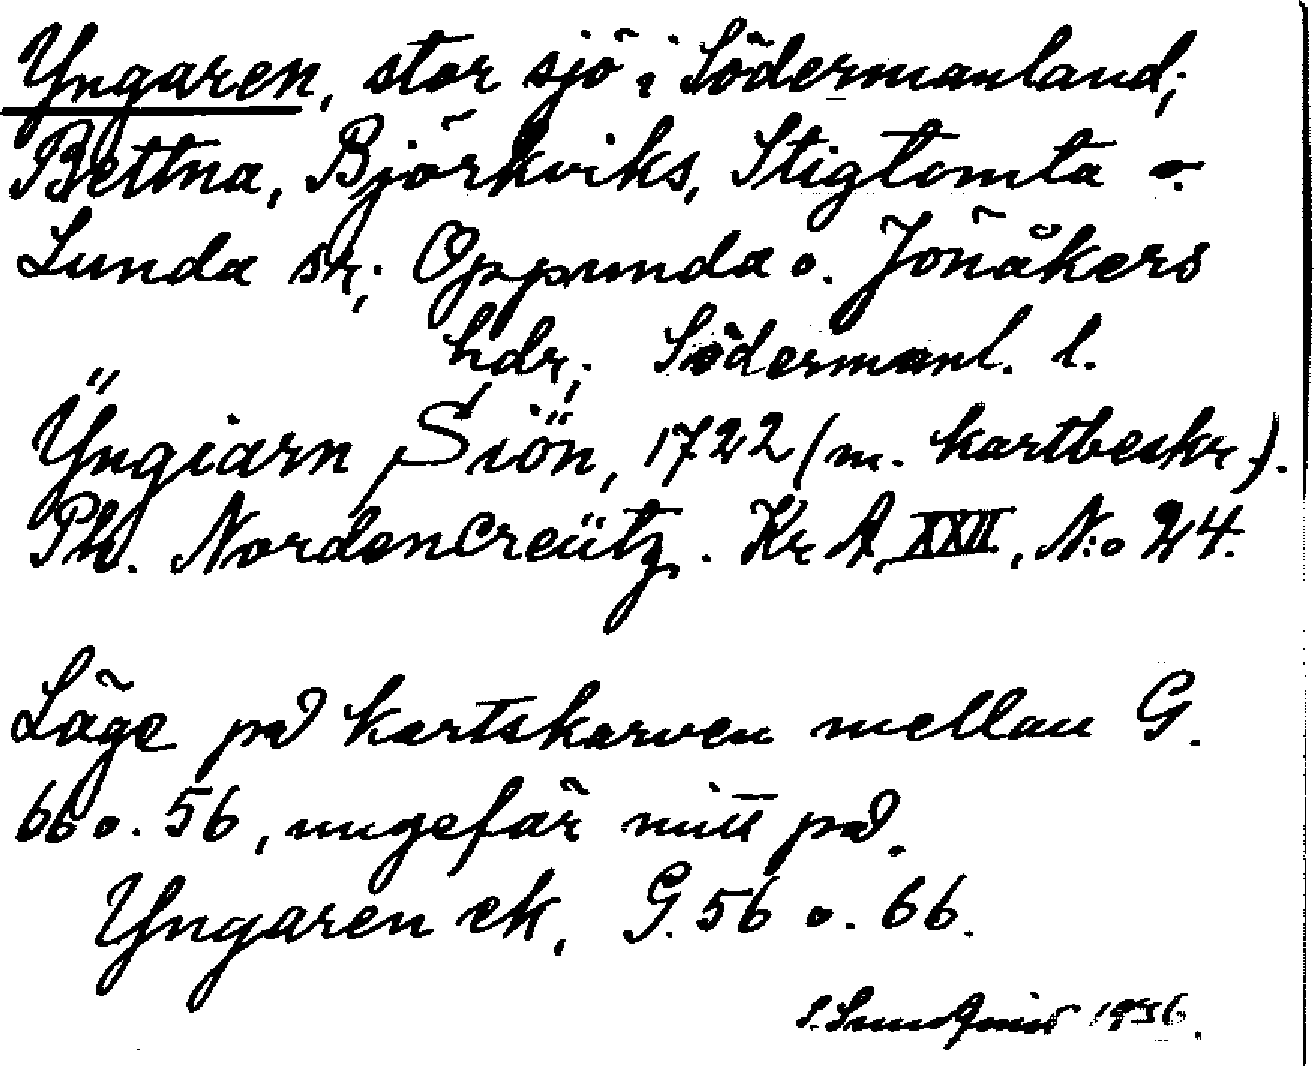 Yngaren, stor sjö i Södermanland;
Bettna, Björkviks, Stigtomta o.
Lunda sk; Oppunda o. Jönåkers
hdr; Södermanl. l.
Ÿngiarn Siön, 1722 (m. kartbeskr.).
Ph. Nordencreütz. Kr A, XXII, N:o 24.
Läge på kartskarven mellan G.
66 o. 56, ungefär mitt på.
Yngaren ek, G. 56 o. 66.
S. 1936.